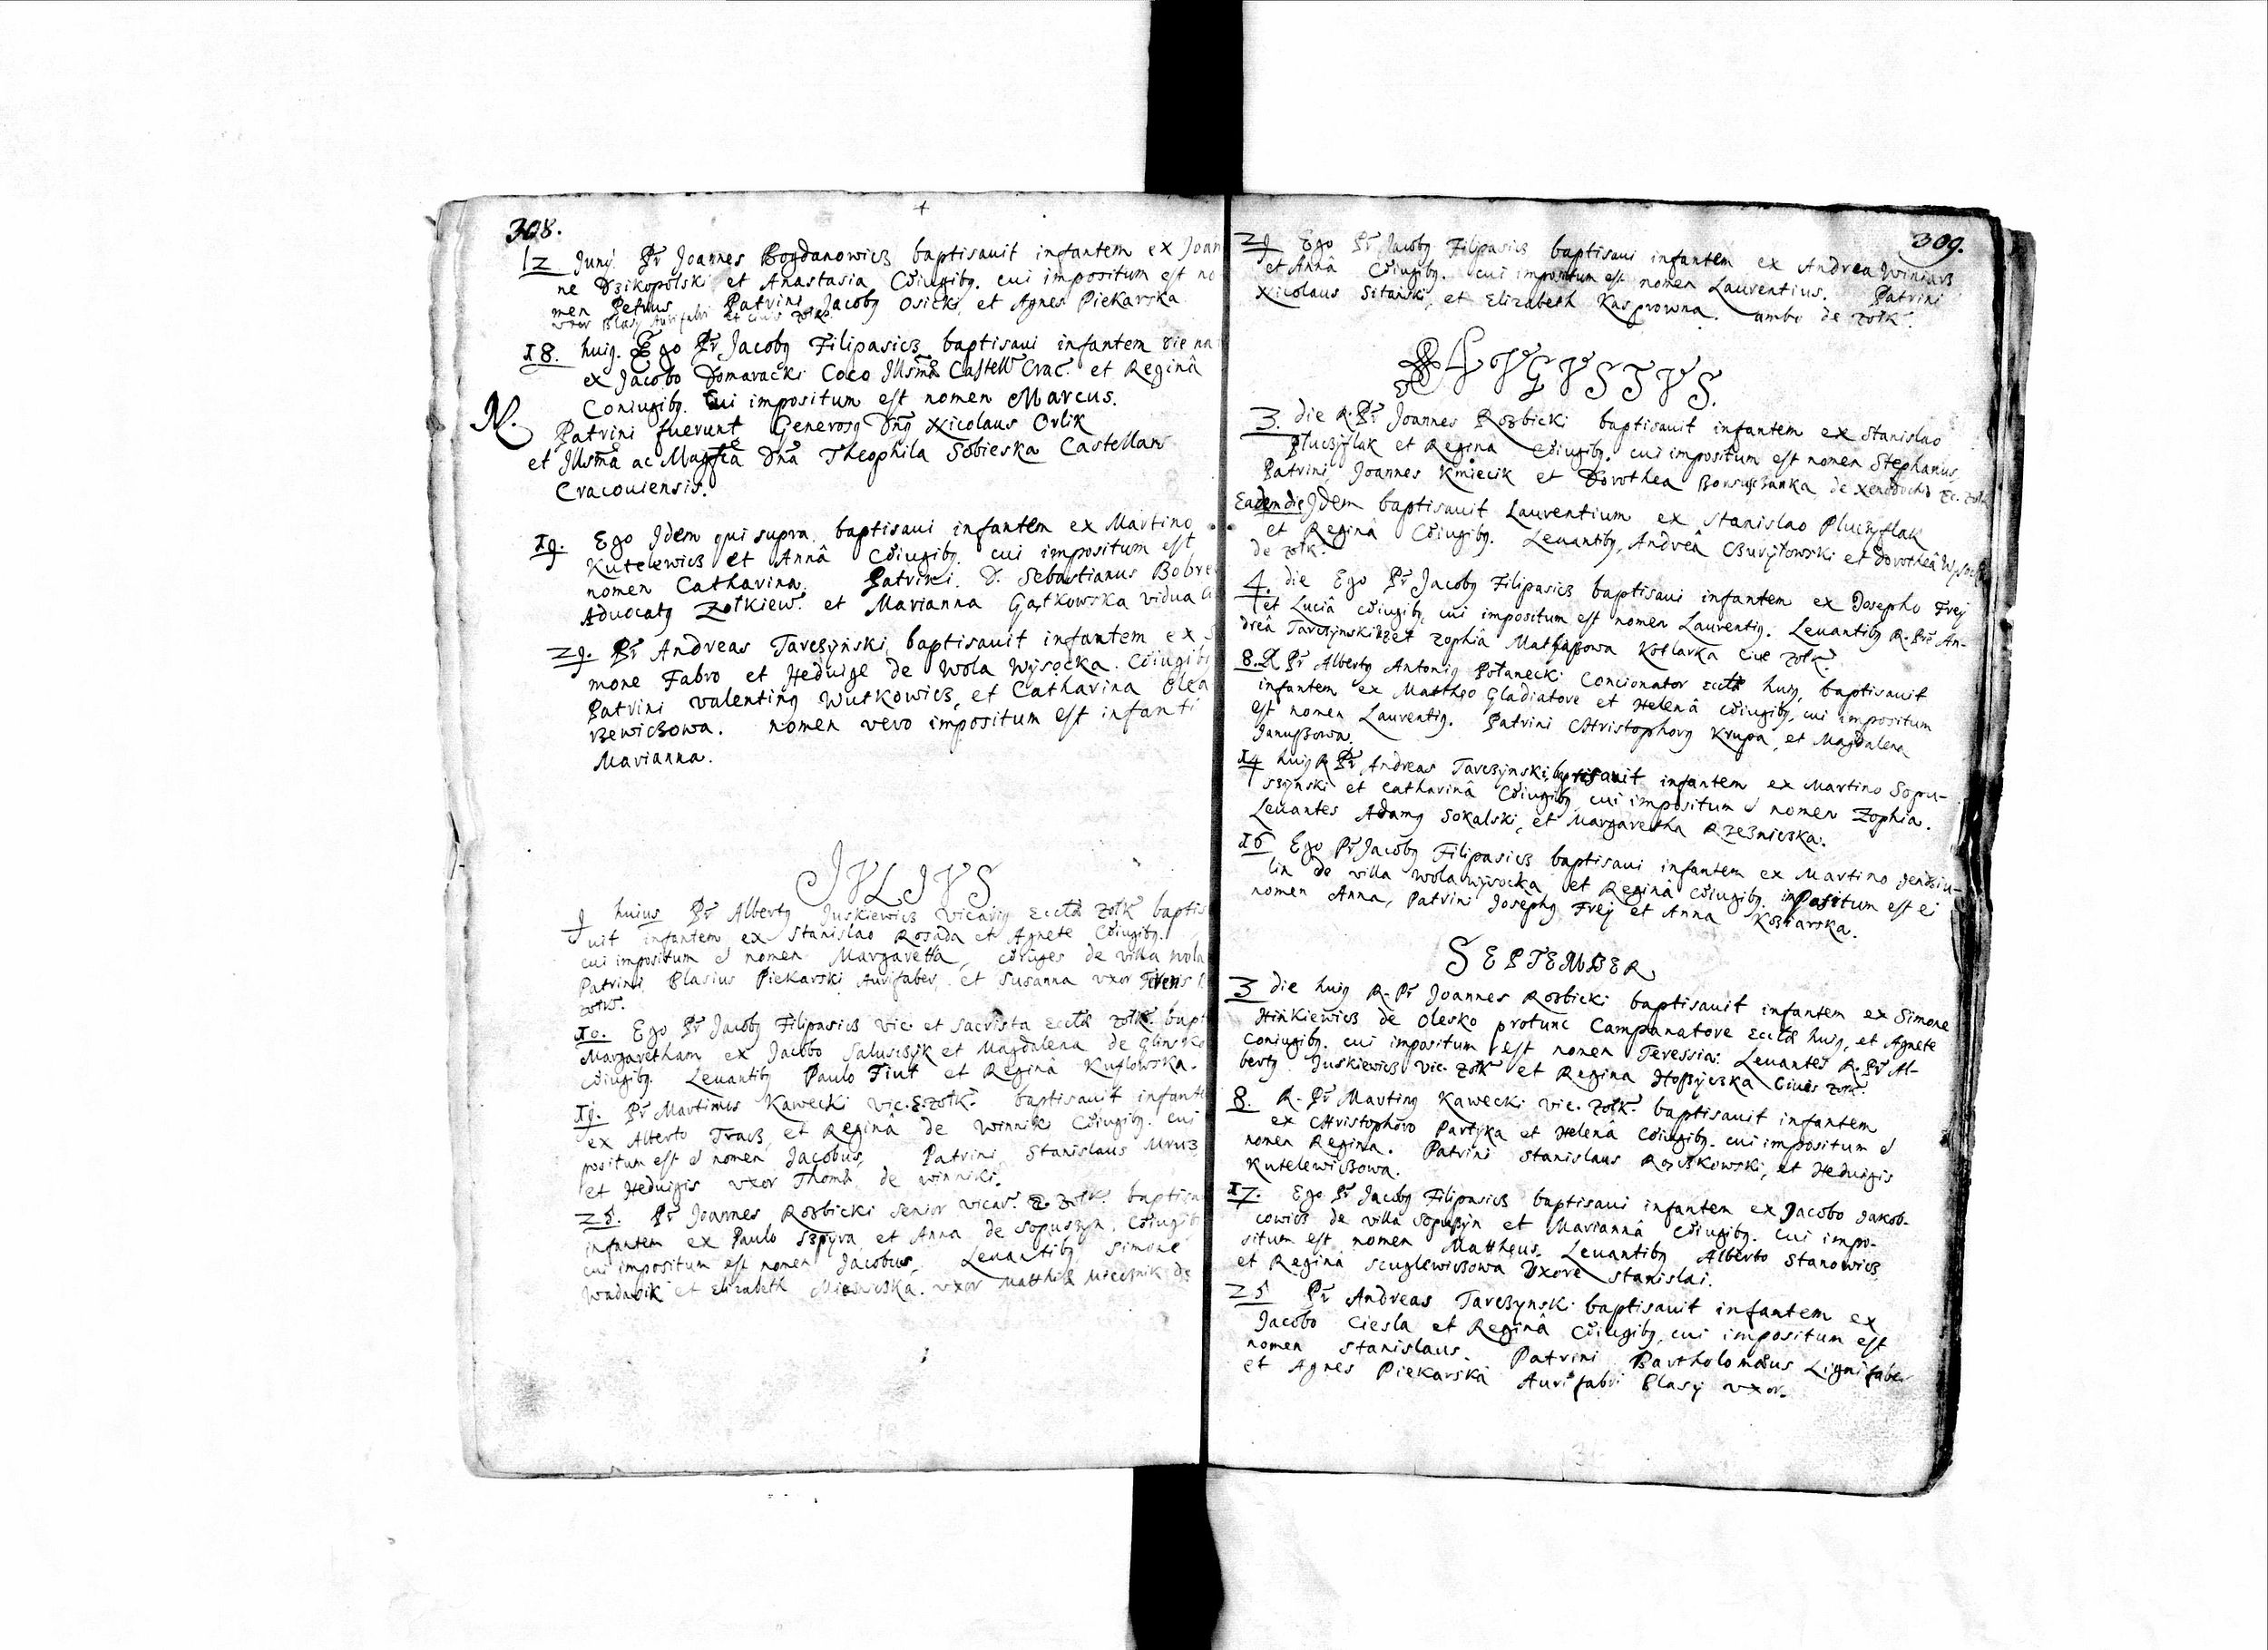 308.
12 Junÿ. Pr Joannes Bogdanowicz baptisauit infantem ex Joan
ne Dzikopolski et Anastasia Cõiugibq. cui impositum est no
men Petrus. Patrini Jacobq Osicki, et Agnes Piekarska
uxor Blasÿ Aurifabri et Ciuis Zolk.
18. huiq. Ego Pr Jacobq Filipasicz baptisaui infantem
ex Jacobo Domaracki Coco Illsmã Castell Crac. et Reginâ
Coniugibq. Cui impositum est nomen Marcus.
N. Patrini fuerunt Generosq Dnq Nicolaus Orlik
et Illsmã ac Magfca Dnã Theophila Sobieska Castellan
Cracouiensis.
19. Ego Jdem qui supra baptisaui infantem ex Martino
Kutelewicz et Annâ Cõiugibq. cui impositum est
nomen Catharina. Patrini. D. Sebastianus Bobre
Aduocatq Zołkiew. et Marianna Gątkowska vidua
29. Pr Andreas Tarczÿnski baptisauit infantem ex S
mone Fabro et Heduige de Wola Wÿsocka. Cõiugibq
Patrini Valentinq Wutkowicz, et Catharina Olea
rzewiczowa. nomen vero impositum est infanti
Marianna.
JVLIVS
1 huius Pr Albertq Juskiewicz vicariq Eccłã Zołk baptis
uit infantem ex Stanislao Rosada et Agnete Cõiugibq.
cui impositum ẽ nomen Margaretta, cõiuges de villa Wola
Patrini Blasius Piekarski Aurifaber, et Susanna vxor
zołw.
10. Ego Pr Jacobq Filipasicz vic. et Sacrista Eccłã Zołk. bapt
Margaretham ex Jacobo Salusczÿk et Magdalena de Glinsko
cõiugibq. Leuantibq Paulo Fiut et Reginâ Kuflowska.
19. Pr Martinus Kawecki vic. E. Zołk. baptisauit infante
ex Alberto Tracz, et Reginâ de Winniki Cõiugibq. cui
positum est ẽ nomen Jacobus, Patrini Stanislaus Mruz,
et Heduigis vxor Thomã, de Winniki.
25. Pr Joannes Rozbicki Senior vicar. E. Zołk. baptisa
infantem ex Paulo Szpÿra et Anna de Sopuszÿn, Cõiugib
cui impositum est nomen Jacobus, Leuantibq Simone
et Elizabeth vxor Matthiæ Miecznik de
309.
29 Ego Pr Jacobq Filipasicz baptisaui infantem ex Andrea Winiarz
et Annâ Cõiugibq. cui impositum est nomen Laurentius. Patrini
Nicolaus Sitański, et Elizabeth Kasprowna. ambo de Zołk.
AVGVSTVS.
3. die R. Pr Joannes Rozbicki baptisauit infantem ex Stanislao
Pluczÿflak et Reginâ Cõiugibq. cui impositum est nomen Stephanus,
Patrini, Joannes Kmiecik et Dorothea de Xenodochio Ec. Zołk
Eadem die Jdem baptisauit Laurentium ex Stanislao Pluczyflak
et Reginâ Cõiugibq. Leuantibq, Andreâ Czuryłowski et Dorotheâ
de Zołk.
4. die Ego Pr Jacobq Filipasicz baptisaui infantem ex Josepho Freÿ
et Luciâ cõiugibq, cui impositum est nomen Laurentiq. Leuantibq R. Pre An-
dreâ Tarczynski et Zophiâ Kotlarka Ciue Zołk.
8. R Pr Albertq Antoniq Połanecki Concionator Eccłã huiq, baptisauit
infantem ex Mattheo Gladiatore et Helenâ cõiugibq, cui impositum
est nomen Laurentiq. Patrini Christophorq Krupa, et Magdalena
Januszowa.
14 huiq R Pr Andreas Tarczynski baptisauit infantem ex Martino Sopu-
szÿnski et Catharinâ Cõiugibq cui impositum ẽ nomen Zophia.
Leuantes Adamq Sokalski, et Margaretha Rzeźniczka.
16 Ego Pr Jacobq Filipasicz baptisaui infantem ex Martino Jendziu-
lin de villa Wola wÿsocka et Reginâ Cõiugibq. inpositum est ei
nomen Anna, Patrini Josephq Freÿ et Anna Koziarska.
SEPTEMBER
3 die huiq R. Pr Joannes Rozbicki baptisauit infantem ex Simone
Hińkiewicz de Olesko protunc Campanatore Eccłã huiq, et Agnete
Coniugibq. cui impositum est nomen Teressia. Leuantes R. Pr Al-
bertq Juskiewicz vic. Zołk et Regina Hoszyczka Ciues Zołk.
8. R. Pr Martinq Kawecki vic. Zołk. baptisauit infantem
ex Christophoro Partÿka et Helenâ Cõiugibq. cui impositum ẽ
nomen Regina. Patrini Stanislaus Rączkowski, et Heduigis
Kutelewiczowa.
17. Ego Pr Jacobq Filipasicz baptisaui infantem ex Jacobo Jakob-
cowicz de villa Sopuszÿn et Mariannâ Cõiugibq. cui impo-
situm est nomen Mattheus. Leuantibq Alberto Stanowicz,
et Reginâ Scuglewiczowa Vxore Stanislai.
25 Pr Andreas Tarczynski baptisauit infantem ex
Jacobo Ciesla et Reginâ Cõiugibq, cui impositum est
nomen Stanislaus. Patrini Bartholomæus Lignifaber
et Agnes Piekarska Aurifabri Blasÿ vxor.